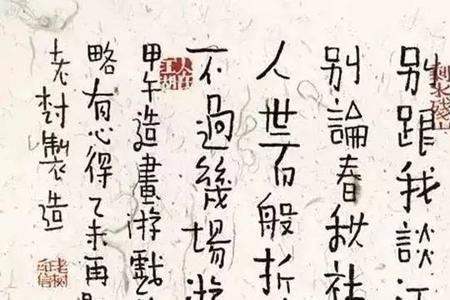 别跟我談
别論春秋社
人世百般折
不過幾場游
人在江湖
甲午造畫游
略有心得乙未再
老树製造